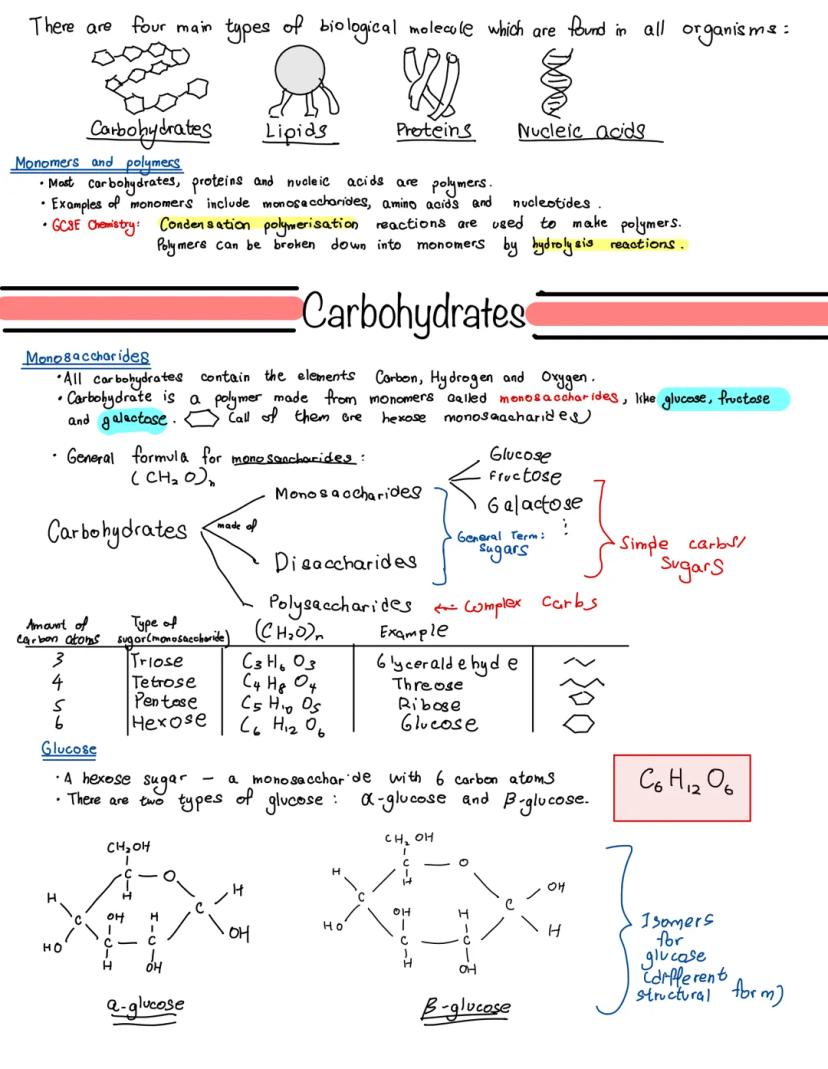 There are four main types of biological molecule which are found in all organisms:
Carbohydrates Lipids Proteins Nucleic acids
Monomers and polymers
• Most carbohydrates, proteins and nucleic acids are polymers.
• Examples of monomers include monosaccharides, amino acids and nucleotides.
• GCSE Chemistry: Condensation polymerisation reactions are used to make polymers.
Polymers can be broken down into monomers by hydrolysis reactions.
Carbohydrates
Monosaccharides
• All carbohydrates contain the elements Carbon, Hydrogen and Oxygen.
• Carbohydrate is a polymer made from monomers called monosaccharides, like glucose, fructose
and galactose. (all of them are hexose monosaccharides)
• General formula for monosaccharides:
(CH₂O)ₙ
Glucose
Fructose
Galactose
⋮
Carbohydrates made of
Monosaccharides
Disaccharides
Polysaccharides ← Complex Carbs
General Term:
Sugars
Simple carbs/
Sugars
Amount of carbon atoms Type of sugar (monosaccharide) (CH₂O)ₙ Example
3 Triose C₃H₆O₃ Glyceraldehyde
4 Tetrose C₄H₈O₄ Threose
5 Pentose C₅H₁₀O₅ Ribose
6 Hexose C₆H₁₂O₆ Glucose
Glucose
• A hexose sugar – a monosaccharide with 6 carbon atoms
• There are two types of glucose: α-glucose and β-glucose.
C₆H₁₂O₆
CH₂OH
C O
H H
H
C OH H C
HO C C OH
H OH
α-glucose
CH₂OH
C O
H H OH
C OH H C
HO C C H
H OH
β-glucose
Isomers
for
glucose
(different
structural form)